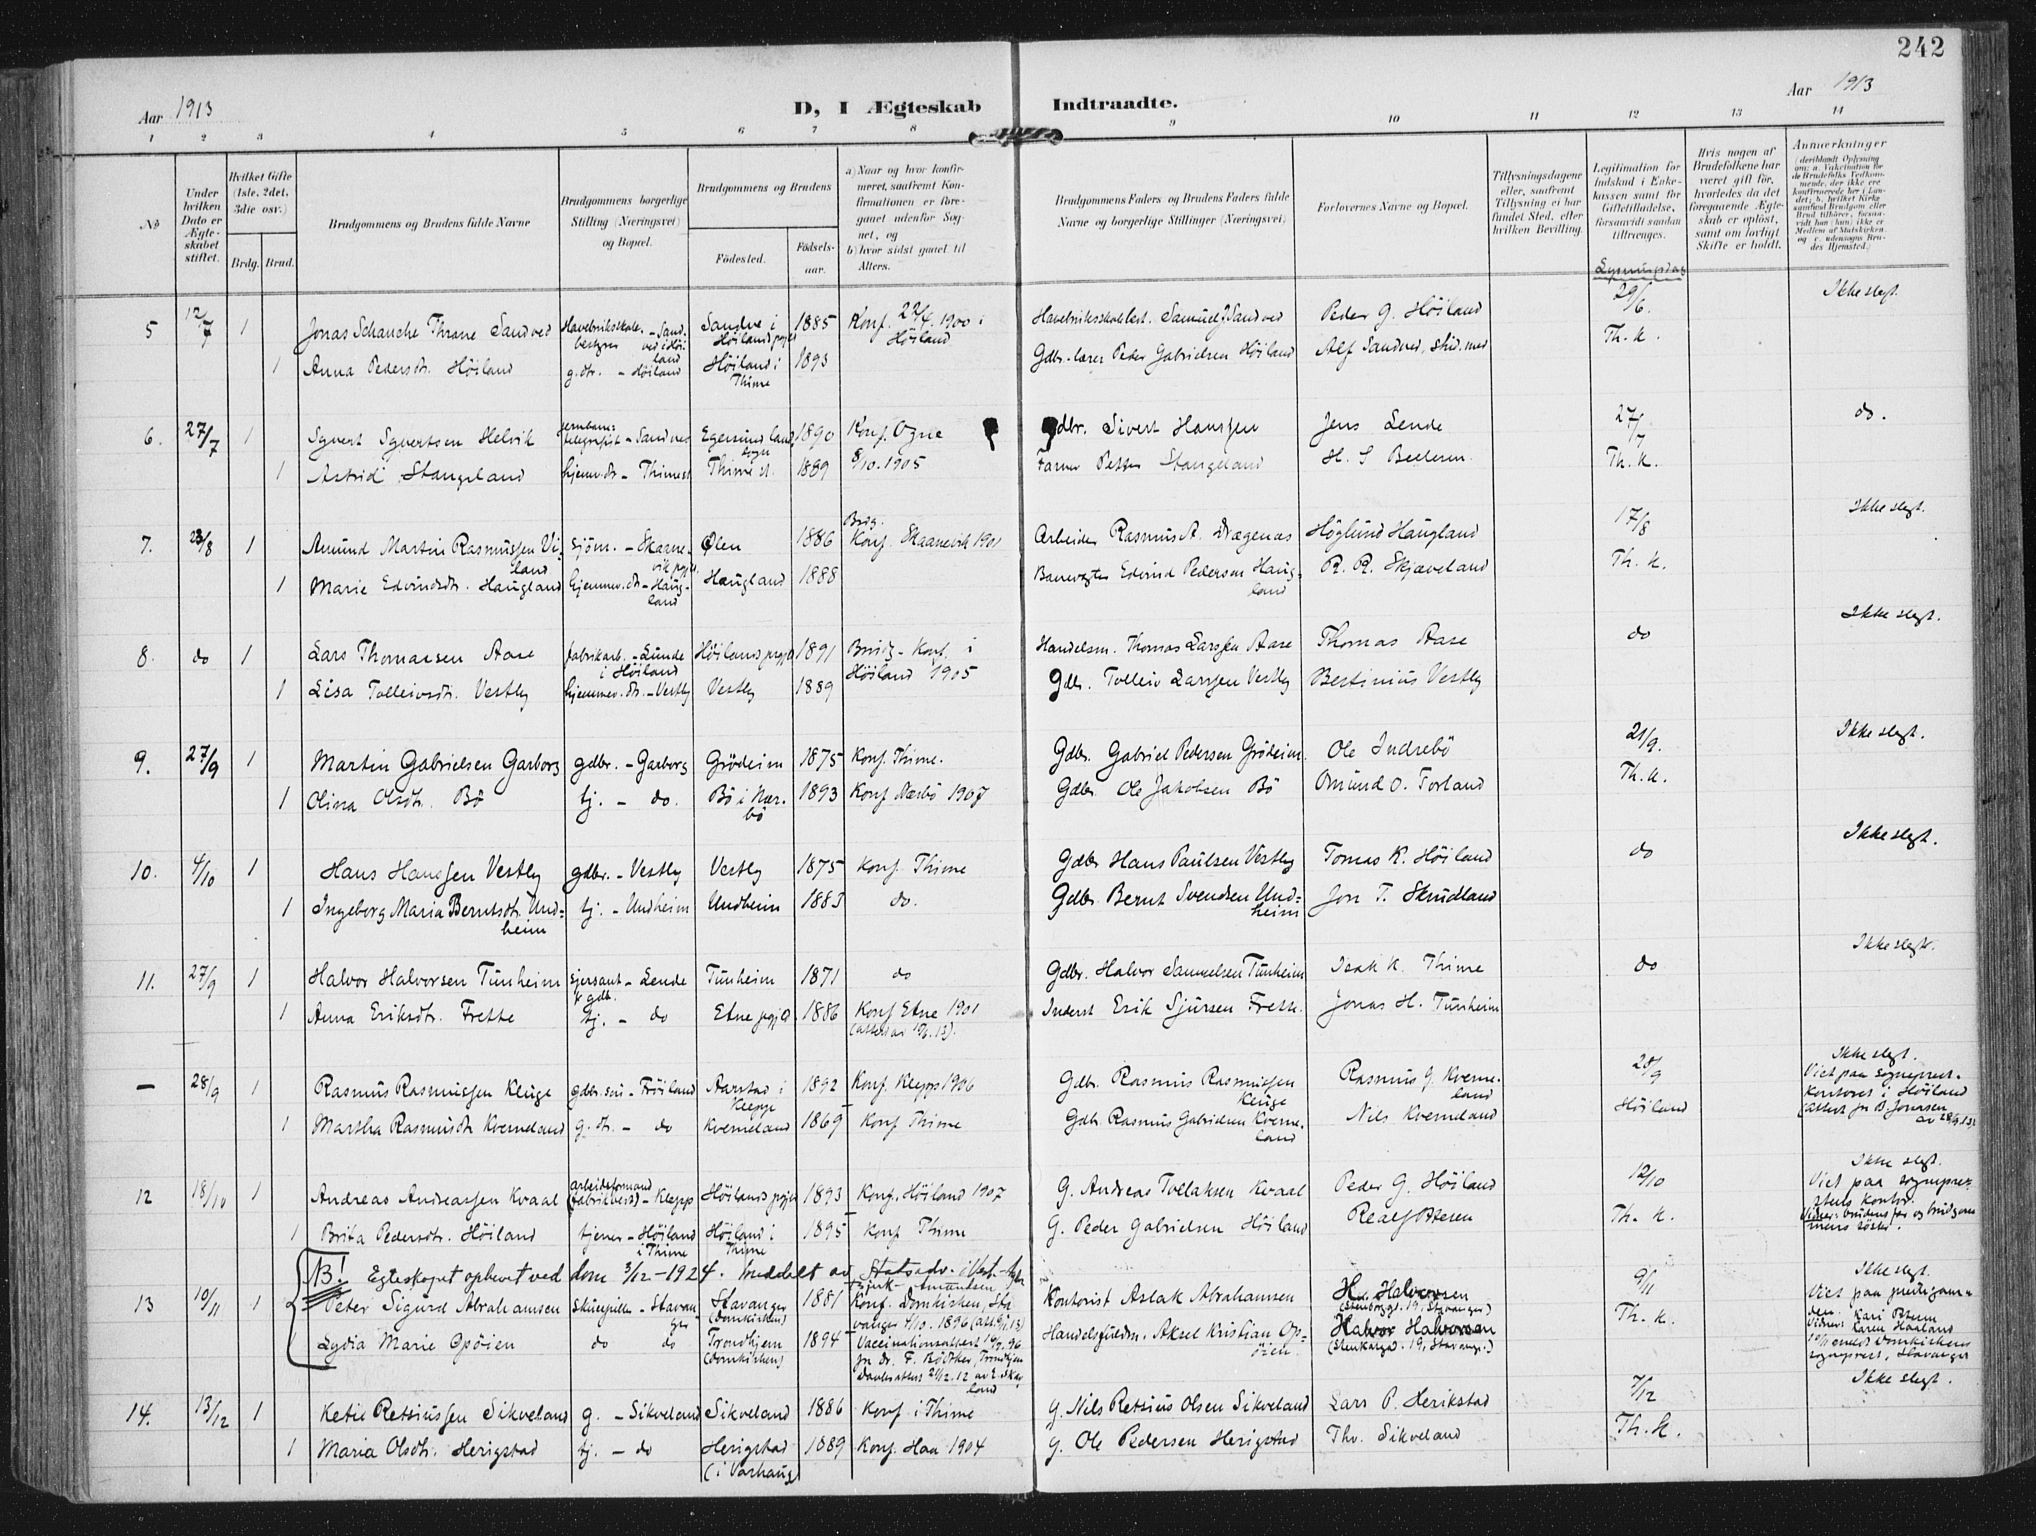 242
Aar 1913
D, I Ægteskab Indtraadte.
Aar 1913
1 2 3 4 5 6 7 8 9 10 11 12 13 14
No
Under hvilken Dato er Ægteskabet stiftet.
Hvilket Gifte (1ste, 2det, 3die osv.)
Brdg. Brud.
Brudgommens og Brudens fulde Navne
Brudgommens borgerlige Stilling (Næringsvei) og Bopæl.
Brudgommens og Brudens
Fødested.
Fødselsaar.
a) Naar og hvor konfirmeret, saafremt Konfirmationen er foregaaet udenfor Sognet, og
b) hvor sidst gaaet til Alters.
Brudgommens Faders og Brudens Faders fulde Navne og borgerlige Stillinger (Næringsvei)
Forlovernes Navne og Bopæl.
Tillysningsdagene eller, saafremt Tillysning ei har fundet Sted, efter hvilken Bevilling.
Legitimation for Indskud i Enkekassen samt for Giftetilladelse, forsaavidt saadan tiltrænges.
Hvis nogen af Brudefolkene har været gift før, hvorledes da det foregaaende Ægteskab er opløst, samt om lovligt Skifte er holdt.
Anmærkninger
Lysningsdag
5 12/7 1 Jonas Schanche Thrane Sandved Sandve i Höiland pgjd 1885 Konf. 22/4. 1900 i Höiland Samuel J Sandved Peder G. Höiland 29/6. Ikke slegt.
1 Anna Pedersdtr. Höiland g.dtr. - Höiland Höiland i Thime 1893 Gdbr.-lærer Peder Gabrielsen Höiland Alf Sandved, stud. med Th. k.
6. 27/7 1 Syvert Syvertsen Helvik telegrafist - Sandnes Egersund lands sogn 1890 Konf. Ogne Gdbr. Sivert Hanssen Jens Lende 27/7 do.
1 Astrid Stangeland hjemv.dtr - Thime st Thime st. 1889 8/10. 1905 Farmer Petter Stangeland Th. k.
7. 23/8 1 Amund Martin Rasmussen Vi land Sjöm. - Skaanevik pgjd. Ølen 1886 Brdg. Konf. Skaanevik 1901 Arbeider Rasmus A. Dragenas Höglund Haugland 17/8 Ikke slegt.
1 Marie Edvindsdtr. Haugland hjemmev.dtr - Haugland Haugland 1888 Banevogter Edvind Pedersen Haugland R. R. Skjæveland Th. k.
8. do 1 Lars Thomassen Aase fabrikarb. - Lunde i Höiland Höilands prgjd 1891 Brudg - Konf. i Höiland 1905 Handelsm. Thomas Larssen Aase Thomas Aase do Ikke slegt.
1 Lisa Tolleivsdtr. Vestly hjemmev.dtr. - Vestly Vestly 1889 Gdbr. Tolleiv Larssen Vestly Bertinius Vestly
9. 27/9 1 Martin Gabrielsen Garborg gdbr. - Garborg Grödeim 1875 Konf. Thime. Gdbr. Gabriel Pedersen Grödeim. Ole Indrebö 21/9. Ikke slegt.
1 Olina Olsdtr. Bö tj. - do. Bö i Nærbö 1893 Konf Nærbö 1907 Gdbr Ole Jakobsen Bö Omund O. Torland Th. k.
10. 4/10 1 Hans Hanssen Vestly gdbr. - Vestly Vestly 1875 Konf Thime Gdbr Hans Paulsen Vestly Tomas K. Höiland do Ikke slegt.
1 Ingeborg Maria Berntsdtr. Undheim tj. - Undheim Undheim 1883 do. Gdbr. Bernt Svendsen Undheim Jon T. Skrudland
11. 27/9 1 Halvor Halvorsen Tunheim - Lende & gdb. Tunheim 1871 do Gdbr. Halvor Samuelsen Tunheim Isak K. Thime do Ikke slegt.
1 Anna Eriksdtr. Frette tj. - do Etne pgjd. 1886 Konf Etne 1901 Inderst Erik Sjursen Frette. Jonas H. Tunheim
— 28/9 1 Rasmus Rasmussen Kluge gdbr. sön - Fröiland Aarstad i Klepp 1892 Konf. Klepp 1906 Gdbr. Rasmus Rasmussen Kluge Rasmus G. Kverneland 28/9 Ikke slegt. Viet paa sogneprest-kontoret i Höiland (attest fr B. Jonassen av 28/9. 13)
1 Martha Rasmusdtr Kverneland g. dtr. - do Kverneland 1869 Konf Thime Gdbr Rasmus Gabrielsen Kverneland Nils Kverneland Höiland
12 18/10 1 Andreas Andreassen Kvaal arbeidsformand (fabrikbest) - Klepp Höilands pgjd 1893 Konf. Höiland 1907 G. Andreas Tvelaksen Kvaal Peder G. Höiland 12/10 Ikke slegt. Viet paa sogneprestens kontor. Vidner: brudens far og brudgommens söster.
1 Brita Pedersdtr. Höiland tjener - Höiland i Thime Höiland i Thime 1895 Konf Thime G. Peder Gabrielsen Höiland Th. k.
NB! Egteskapet ophevet ved dom 3/12-1924. meddelt av Statsadv.
13 10/11 1 Peter Sigurd Abrahamsen Skuespiller - Stavanger Stavanger (domkirken) 1881 Konf. Domkirken, Stavanger 4/10. 1896 Kontorist Aslak Abrahamsen H. Halvorsen (Stenkargt. 19, Stavanger) 9/11 Ikke slegt. Viet paa
1 Lydia Marie Opöien do do Trondhjem (domkirken) 1894 Vaccinationsattest Handelsfuldm. Aksel Kristian Opöien. Halvor Halvorsen (Stenkargd. 19, Stavang.) Th. k. Vidner: Karen Haaland
14. 13/12 1 Ketil Retsiussen Sikveland g. - Sikveland Sikveland 1886 Konf. i Thime G. Nils Retsius Olsen Sikveland Lars P. Herikstad 7/12 Ikke slegt.
1 Maria Olsdtr. Herigstad tj. - do Herigstad (i Varhaug) 1889 Konf. Haa 1904 G. Ole Pedersen Herigstad Thv. Sikveland Th. k.